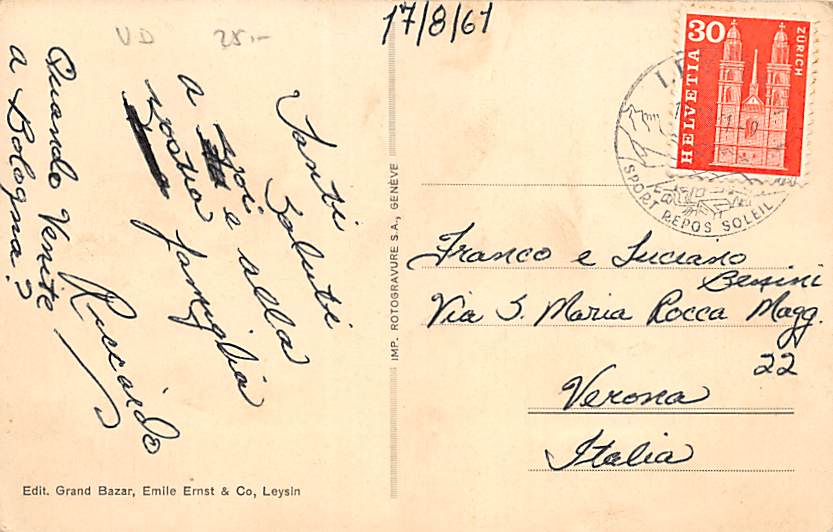 VD 25.-
17/8/61
Tanti
saluti
a voi e alla
vostra famiglia
Riccardo
Quando Venite
a Bologna?
IMP. ROTOGRAVURE S.A., GENÈVE
30
HELVETIA
ZÜRICH
SPORT REPOS SOLEIL
Franco e Luciano
Via S. Maria Rocca Magg.
22
Verona
Italia
Edit. Grand Bazar, Emile Ernst & Co, Leysin